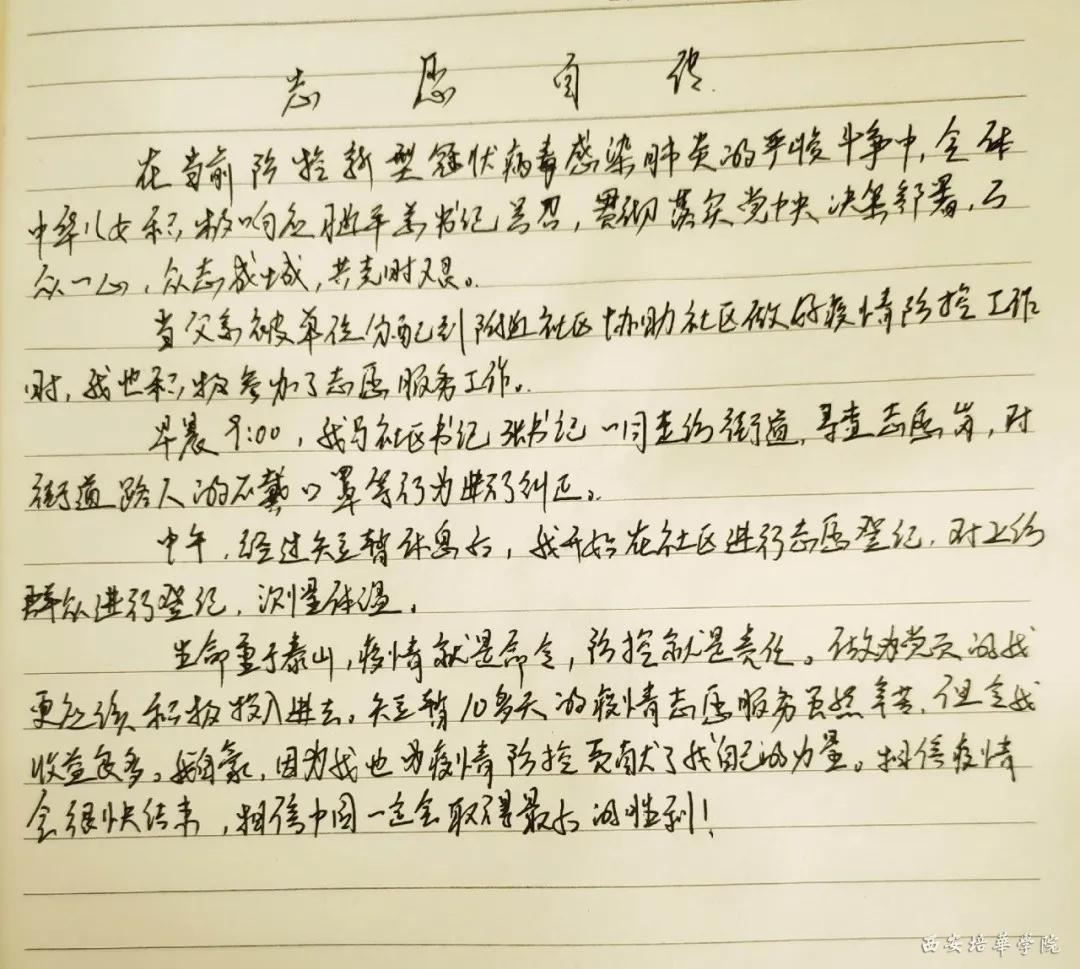 志愿自传
在当前防控新型冠状病毒感染肺炎的严峻斗争中,全体
中华儿女积极响应习近平总书记号召,贯彻落实党中央决策部署,万
众一心,众志成城,共克时艰。
当父亲被单位分配到附近社区协助社区做好疫情防控工作
时,我也积极参加了志愿服务工作。
早晨9:00,我与社区书记张书记一同查纷街道,寻查志愿岗,对
街道路人的不戴口罩等行为进行纠正。
中午,经过短暂休息后,我开始在社区进行志愿登记,对上纷
群众进行登记,测量体温。
生命重于泰山,疫情就是命令,防控就是责任。做为党员的我
更应该积极投入进去。短暂10多天的疫情志愿服务虽然辛苦,但令我
收益良多。我自豪,因为我也为疫情防控贡献了我自己的力量。相信疫情
会很快结束,相信中国一定会取得最后的胜利!
西安培華学院